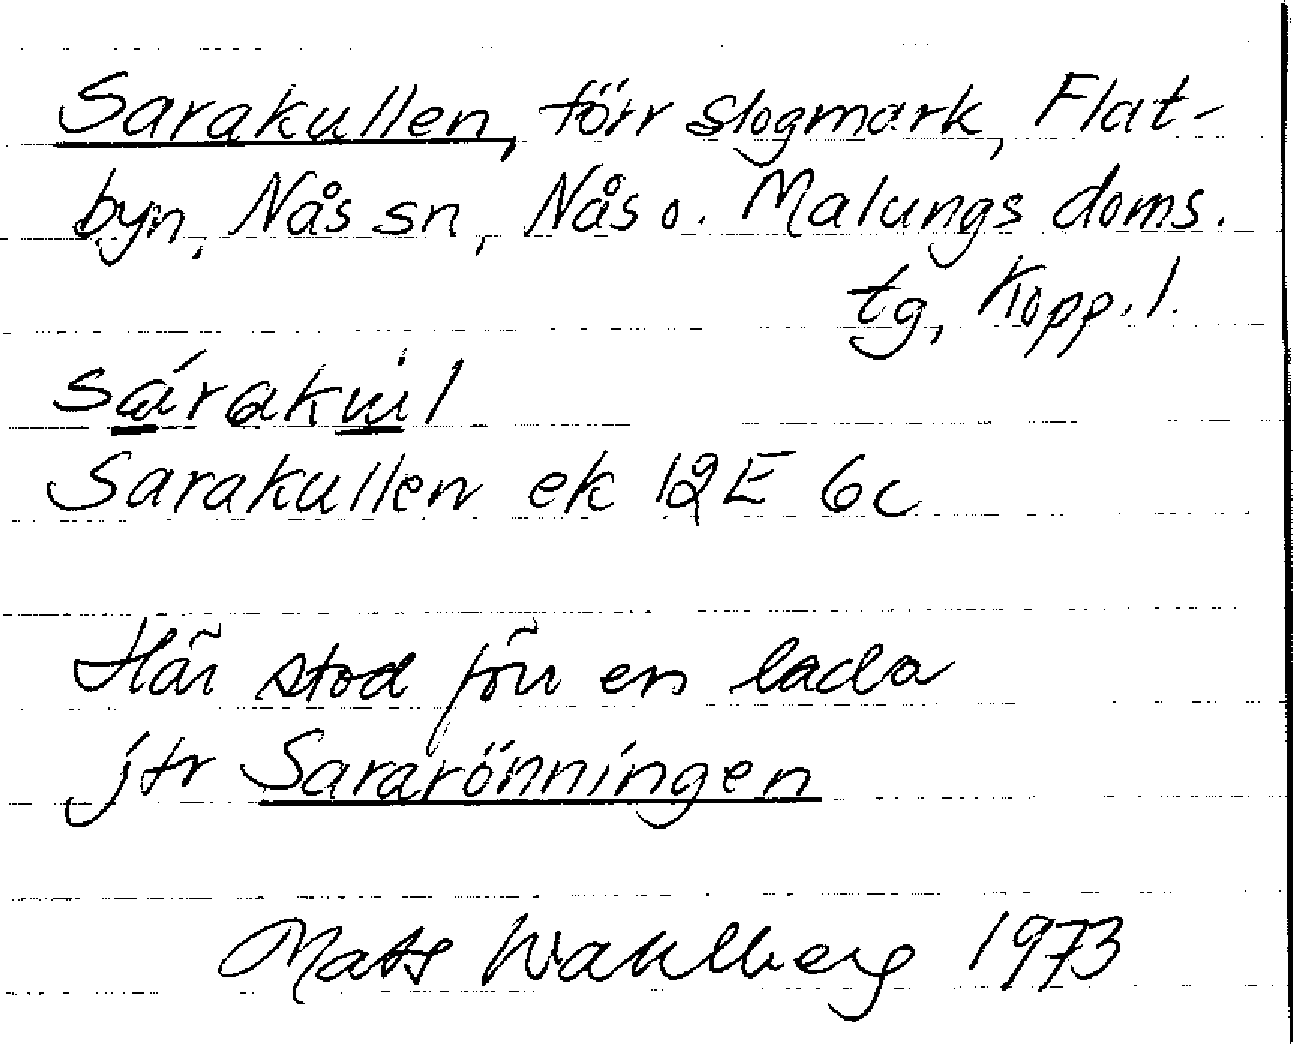 Sarakullen, förr slogmark, Flat-
byn, Nås sn, Nås o. Malungs doms.
tg, Kopp. l.
Sarakullen ek 12E 6c
Här stod förr en lada
jfr Sararönningen
Mats Wahlberg 1973